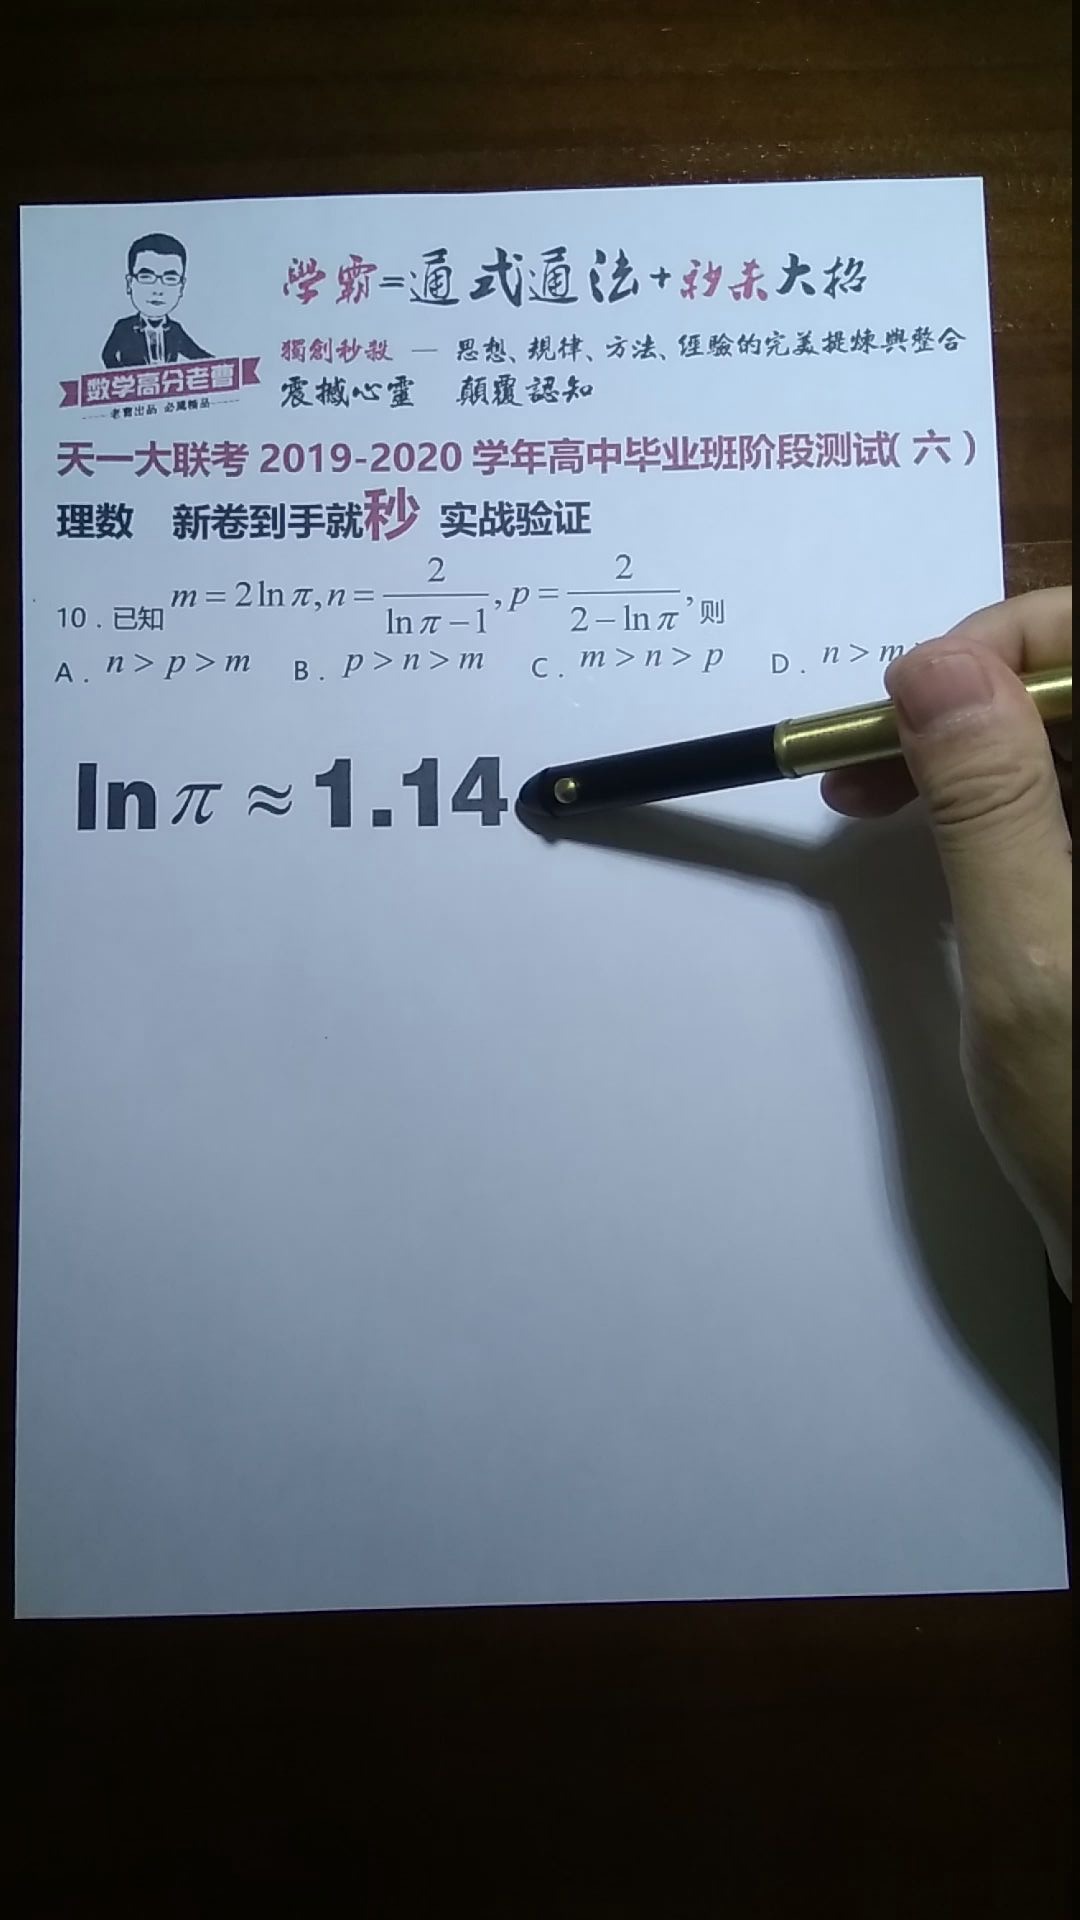 學霸=通式通法+秒杀大招
獨創秒殺 — 思想、規律、方法、經驗的完美提煉與整合
震撼心靈 顛覆認知
数学高分老曹
老曹出品 必属精品
天一大联考 2019-2020 学年高中毕业班阶段测试(六)
理数 新卷到手就秒 实战验证
10．已知 m = 2 ln π, n = 2/(ln π − 1), p = 2/(2 − ln π), 则
A． n > p > m B． p > n > m C． m > n > p D． n > m
ln π ≈ 1.14